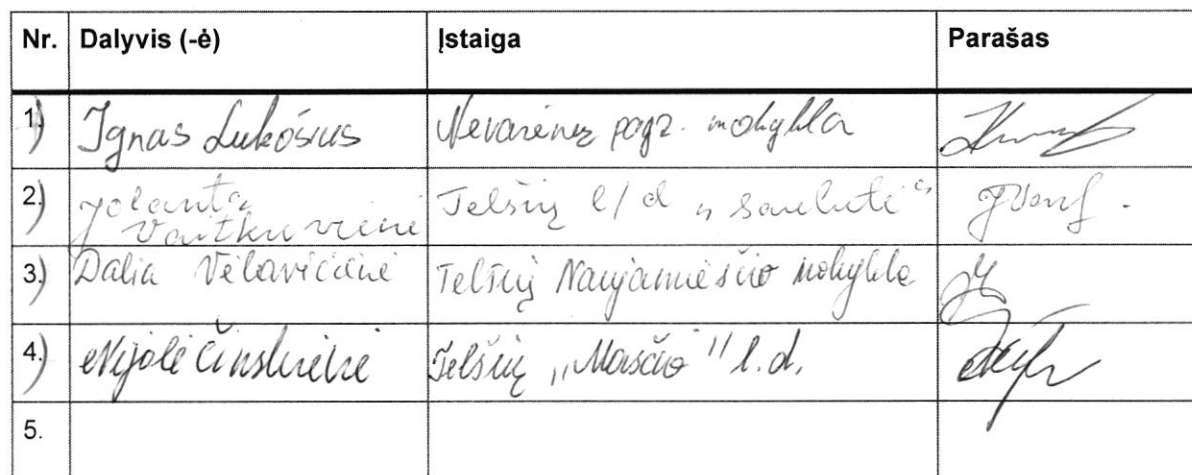 Nr. Dalyvis (-ė) Įstaiga Parašas
1) Ignas Lukošius Nevarėnų pagr. mokykla
2.) Jolanta Vaitkuvienė Telšių l/d „Saulutė“
3.) Dalia Telšių Naujamiesčio mokykla
4.) Nijolė Telšių „Masčio" l.d.
5.